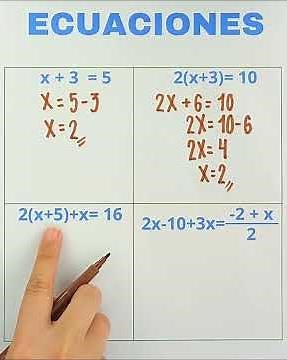 ECUACIONES
x + 3 = 5
x = 5 - 3
x = 2
2(x+3)= 10
2x + 6 = 10
2x = 10 - 6
2x = 4
x = 2
2(x+5)+x= 16
2x-10+3x= -2 + x / 2